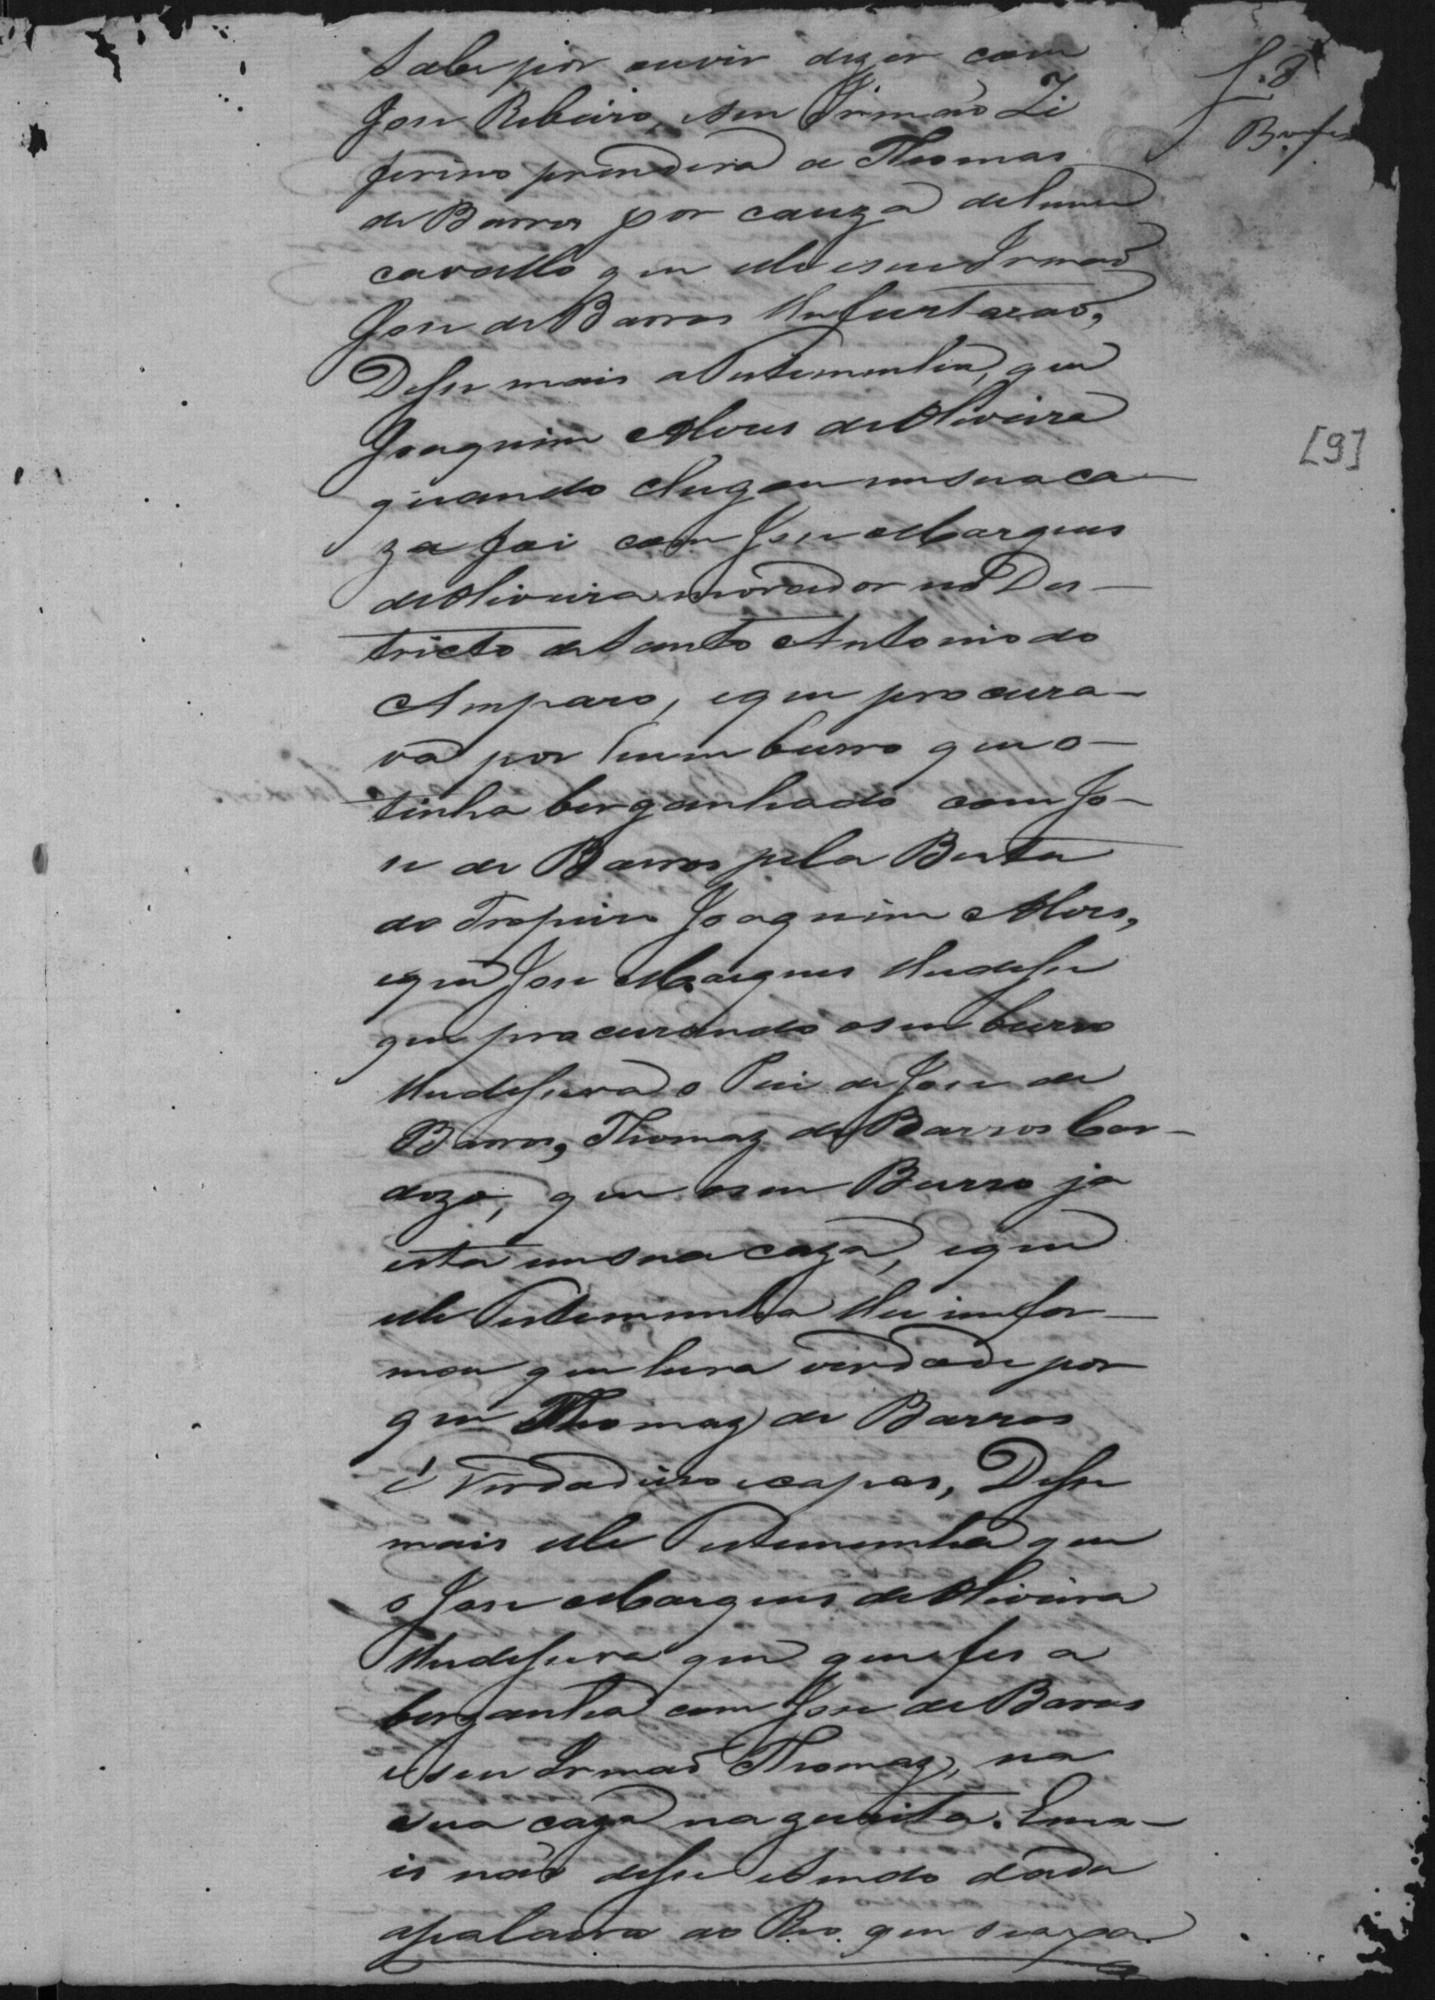 f. 8
[9]
Sabe por ouvir dizer com
Jose Ribeiro, seu Irmão Zi
ferino prendera a Thomas
de Barros por cauza de hum
cavallo que elle e seu Irmaõ
Jose de Barros lhe furtaraõ,
Disse mais a Testemunha, que
Joaquim Alves de Oliveira
quando chegou em sua ca-
za foi com Jose Marques
de Oliveira morador no Des-
tricto de Santo Antonio do
Amparo, e que procura-
va por hum burro que o
tinha berganhado com Jo-
se de Barros pela Besta
do Tropeiro Joaquim Alves,
e que Jose Marques lhe disse
que procurando o seu burro
lhe dissera o Pai de Jose de
Barros, Thomaz de Barros Car-
dozo, que o seu Burro ja
esta em sua caza, e que
elle Testemunha lhe infor-
mou que hera verdade por
que Thomaz de Barros
é Verdadeiro e capas, Disse
mais elle Testemunha que
o Jose Marques de Oliveira
lhe dissera que quem fes a
berganha com Jose de Barros
e seu Irmaõ Thomaz, na
sua caza na guarita. E ma-
is não disse e sendo dada
a palavra ao Reo. que